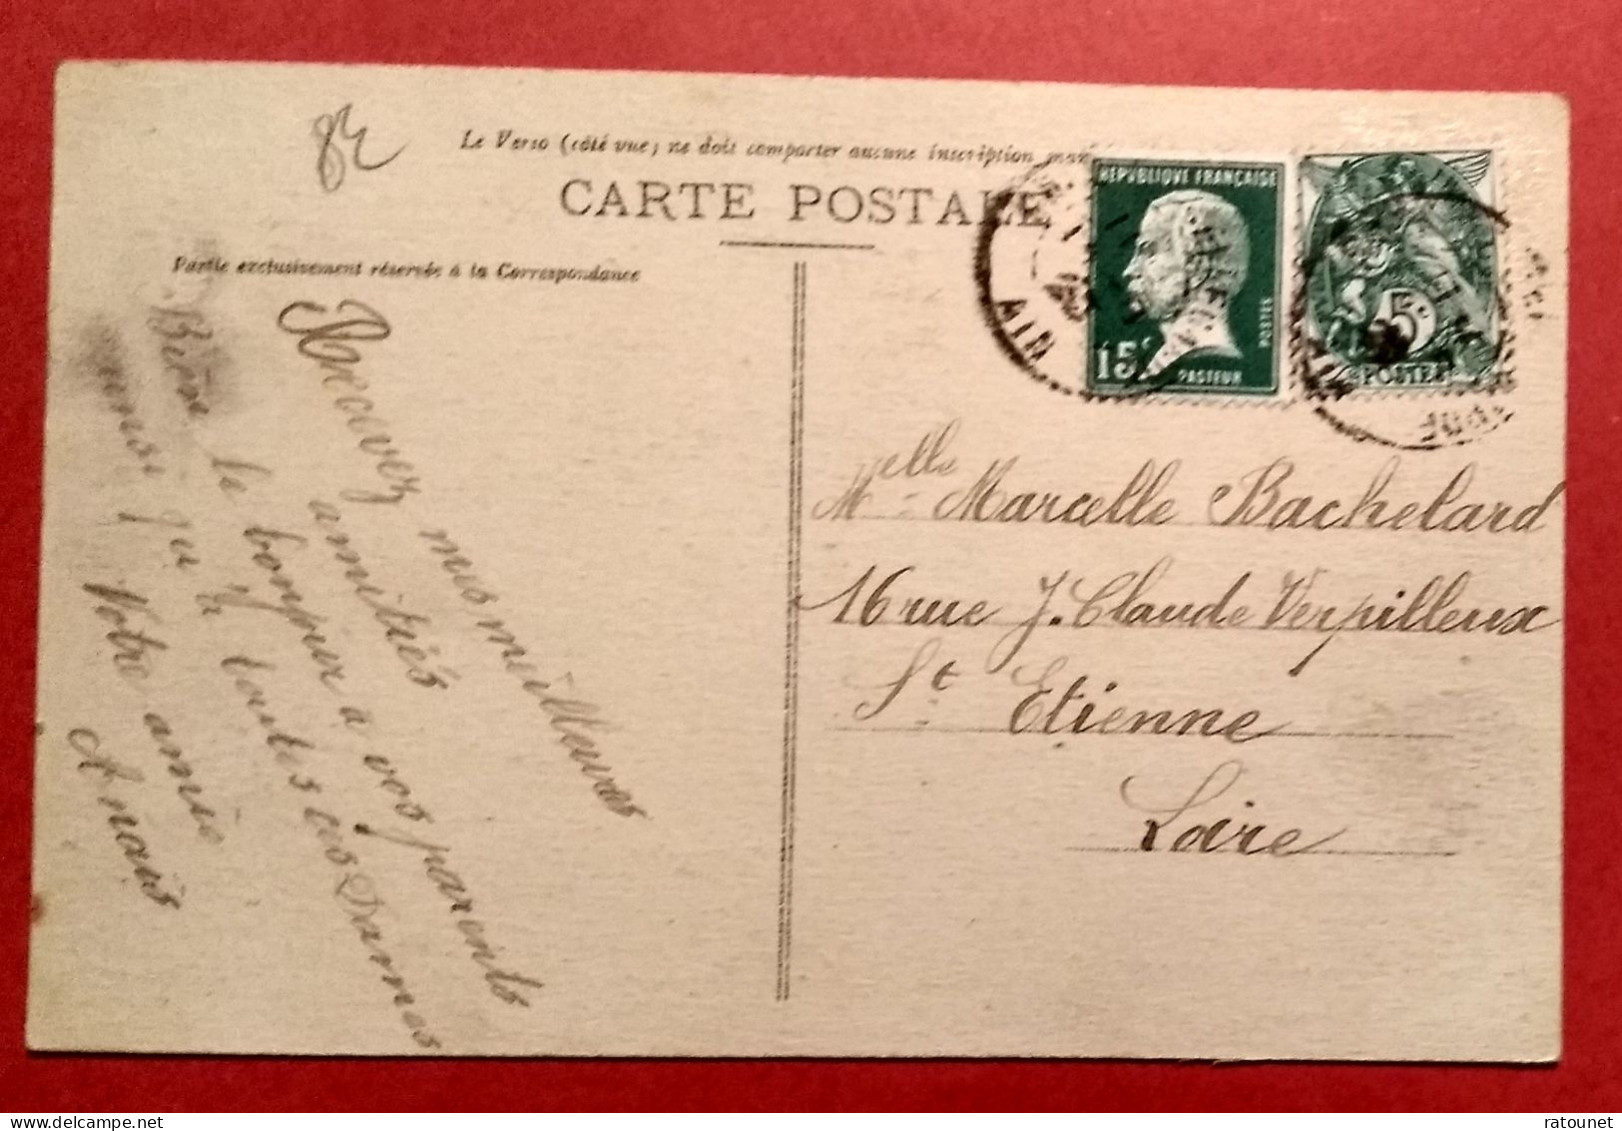 82
Le Verso (côté vue) ne doit comporter aucune inscription
CARTE POSTALE
Partie exclusivement réservée à la Correspondance
REPVBLIQVE FRANÇAISE
15c
PASTEUR
POSTES
5c
POSTES
AIN
Recevez mes meilleures
amitiés
Bien le bonjour à vos parents
ainsi qu'à toutes ces Dames
Votre amie
Anaïs
Melle Marcelle Bachelard
16 rue J. Claude Verpilleux
St Etienne
Loire
ratounet